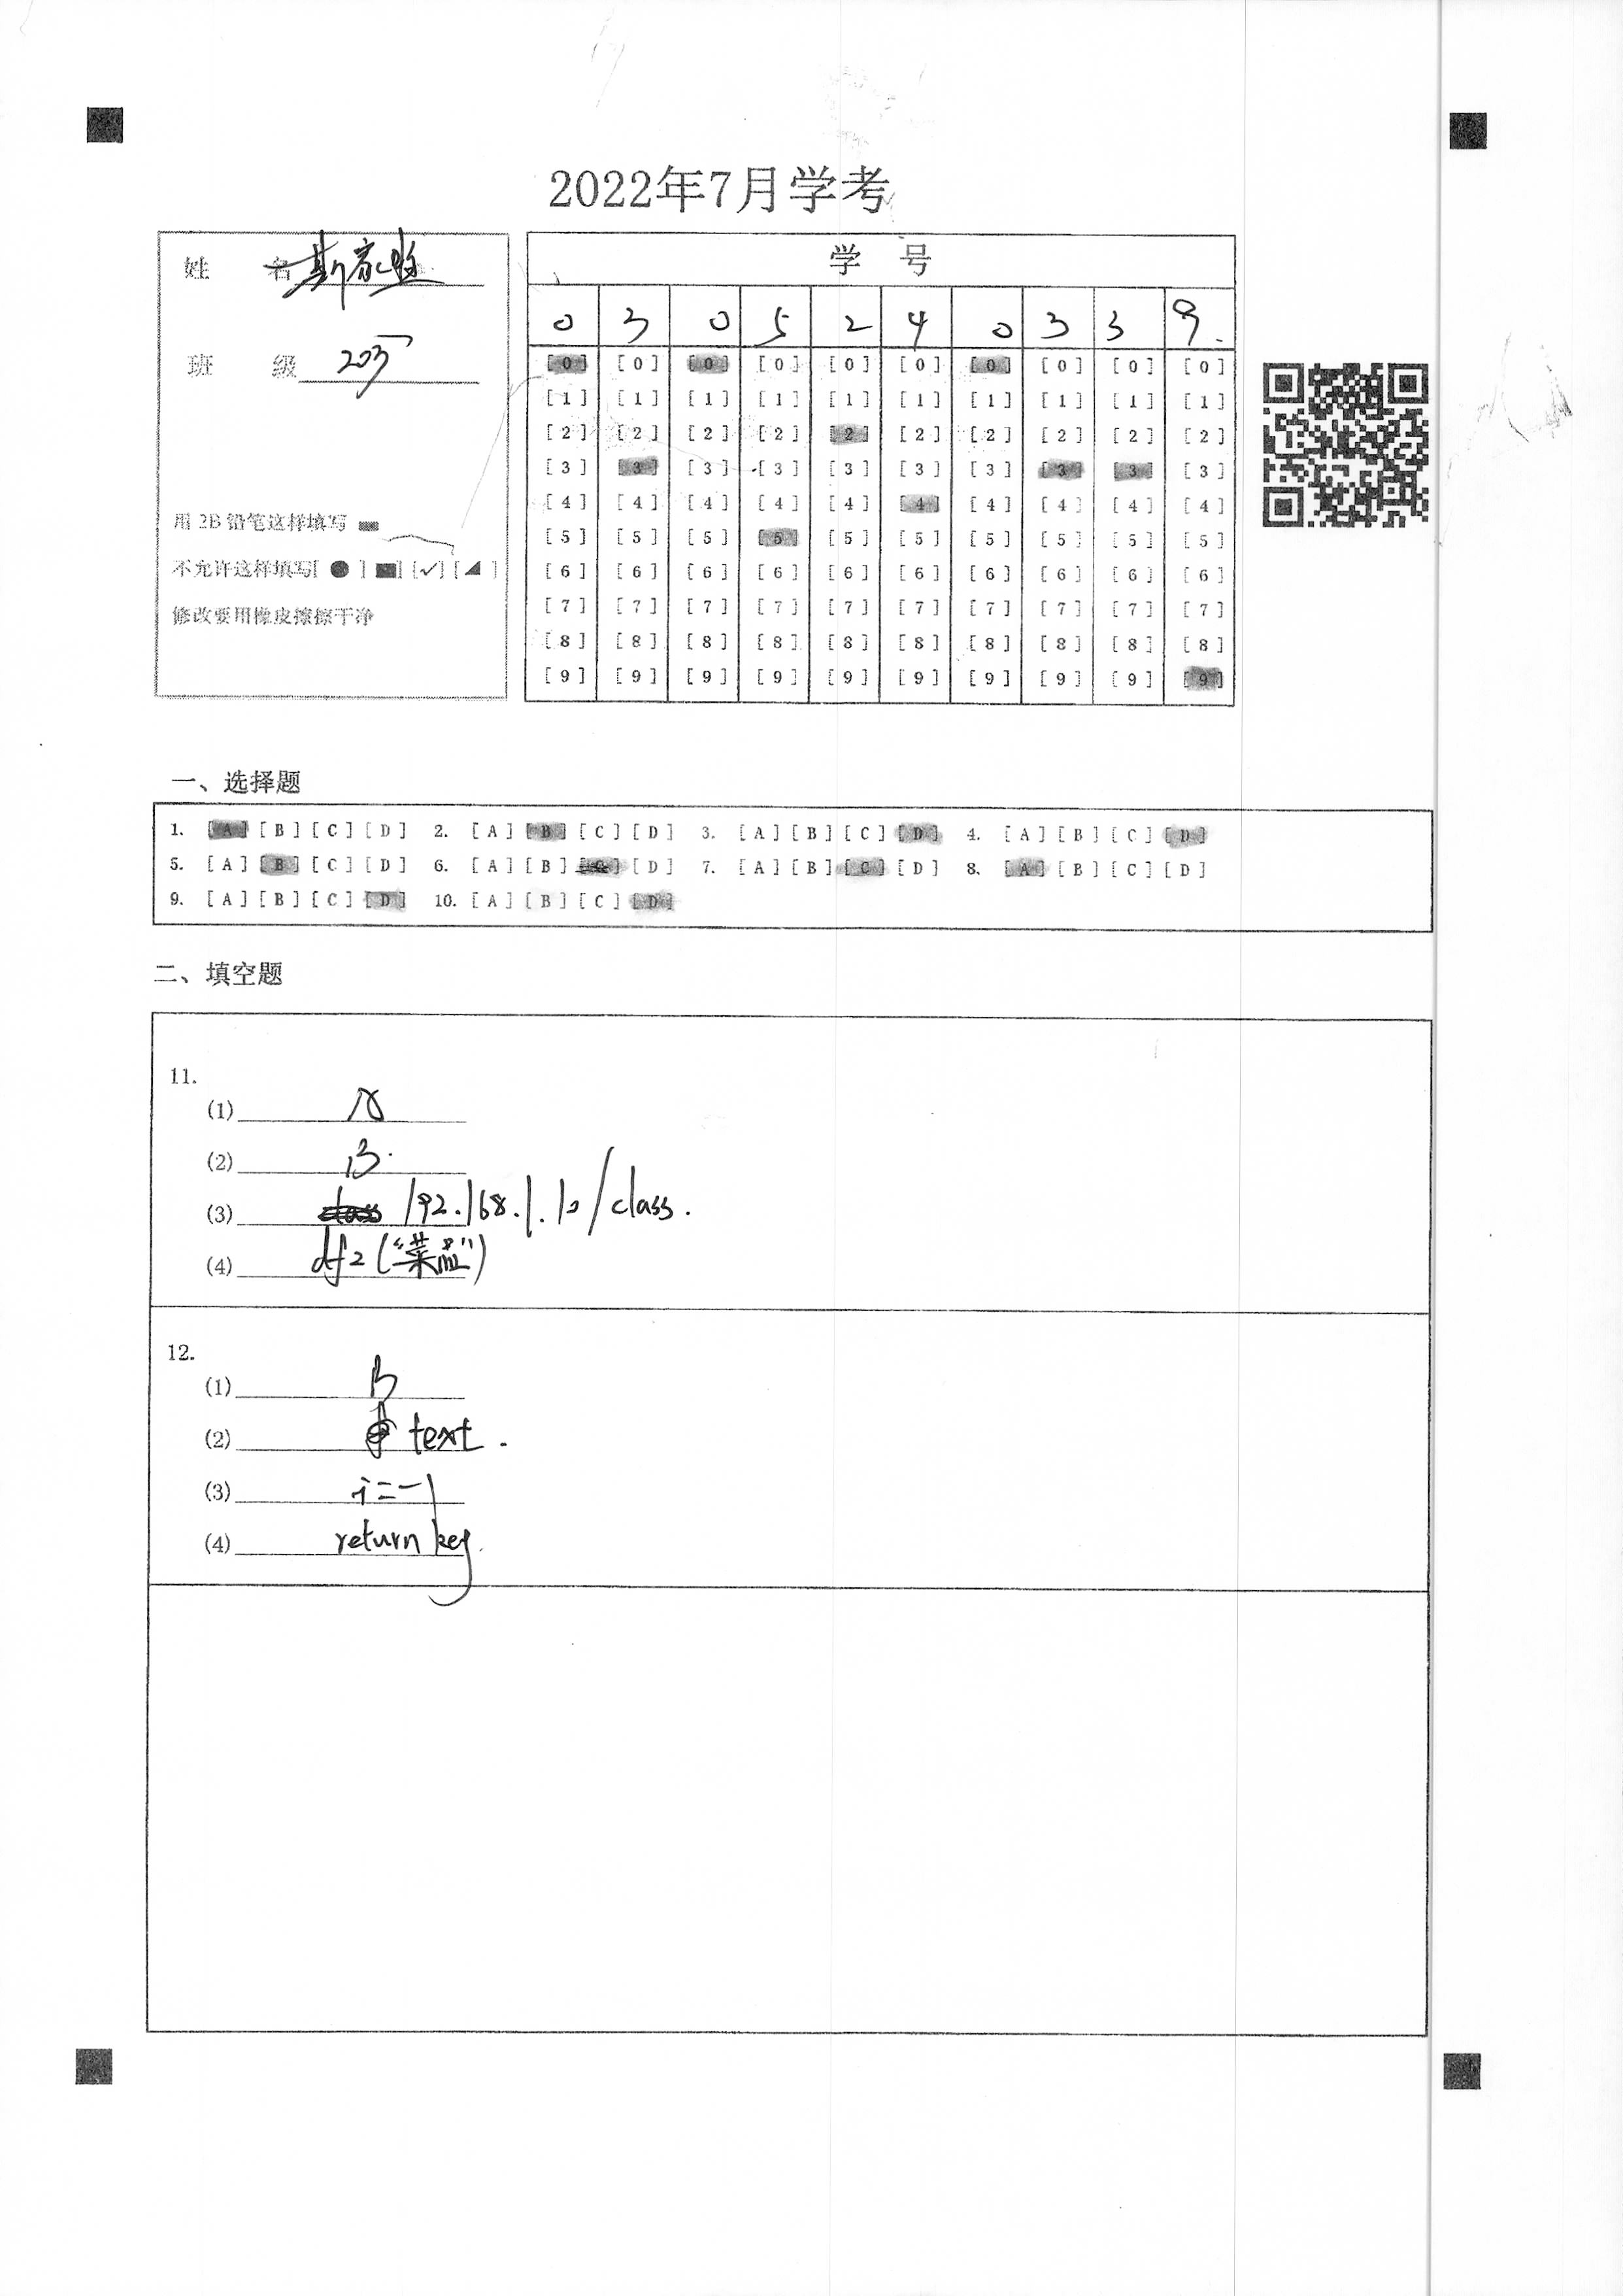 2022年7月学考
姓 名 斯
班 级 203
用 2B 铅笔这样填写
不允许这样填写[ ● ] [■] [✓] [◢ ]
修改要用橡皮擦擦干净
学 号
0 3 0 5 2 4 0 3 3 9.
[0] [0] [0] [0] [0] [0] [0] [0] [0] [0]
[1] [1] [1] [1] [1] [1] [1] [1] [1] [1]
[2] [2] [2] [2] [2] [2] [2] [2] [2] [2]
[3] [3] [3] [3] [3] [3] [3] [3] [3] [3]
[4] [4] [4] [4] [4] [4] [4] [4] [4] [4]
[5] [5] [5] [5] [5] [5] [5] [5] [5] [5]
[6] [6] [6] [6] [6] [6] [6] [6] [6] [6]
[7] [7] [7] [7] [7] [7] [7] [7] [7] [7]
[8] [8] [8] [8] [8] [8] [8] [8] [8] [8]
[9] [9] [9] [9] [9] [9] [9] [9] [9] [9]
一、选择题
1. [A] [B] [C] [D] 2. [A] [B] [C] [D] 3. [A] [B] [C] [D] 4. [A] [B] [C] [D]
5. [A] [B] [C] [D] 6. [A] [B] [C] [D] 7. [A] [B] [C] [D] 8. [A] [B] [C] [D]
9. [A] [B] [C] [D] 10. [A] [B] [C] [D]
二、填空题
11.
(1)
(2) B.
(3) 192.168.1.10/class.
(4) df2("菜品")
12.
(1) B
(2) text.
(3) i=-1
(4) return key.